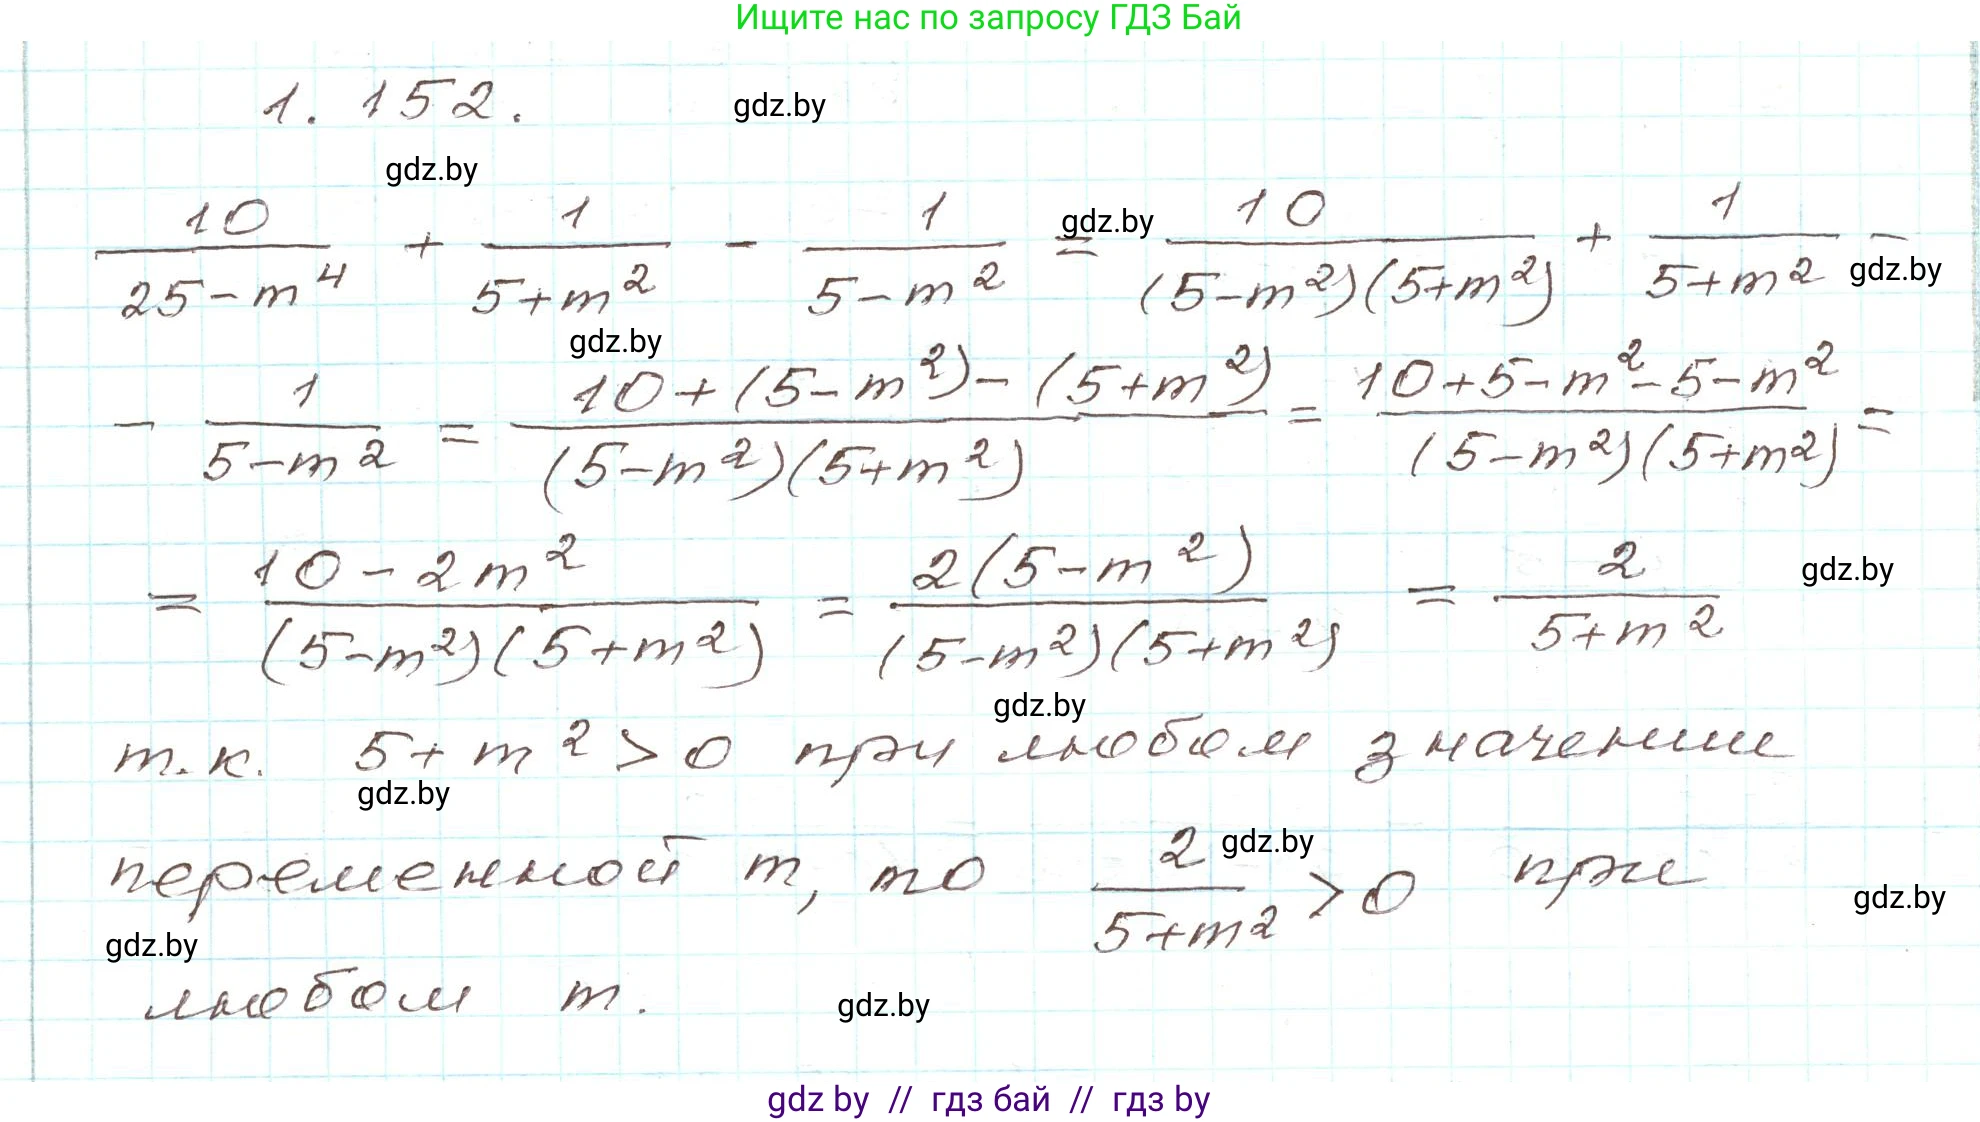 Ищите нас по запросу ГДЗ Бай
1. 152.
gdz.by
gdz.by
10/(25-m⁴) + 1/(5+m²) - 1/(5-m²) = 10/((5-m²)(5+m²)) + 1/(5+m²) -
gdz.by
gdz.by
gdz.by
- 1/(5-m²) = (10+(5-m²)-(5+m²))/((5-m²)(5+m²)) = (10+5-m²-5-m²)/((5-m²)(5+m²)) =
= (10-2m²)/((5-m²)(5+m²)) = 2(5-m²)/((5-m²)(5+m²)) = 2/(5+m²)
gdz.by
gdz.by
т.к. 5+m²>0 при любом значении
gdz.by
переменной m, то 2/(5+m²) >0 при
gdz.by
gdz.by
gdz.by
любом m.
gdz.by
gdz by // гдз бай // гдз by